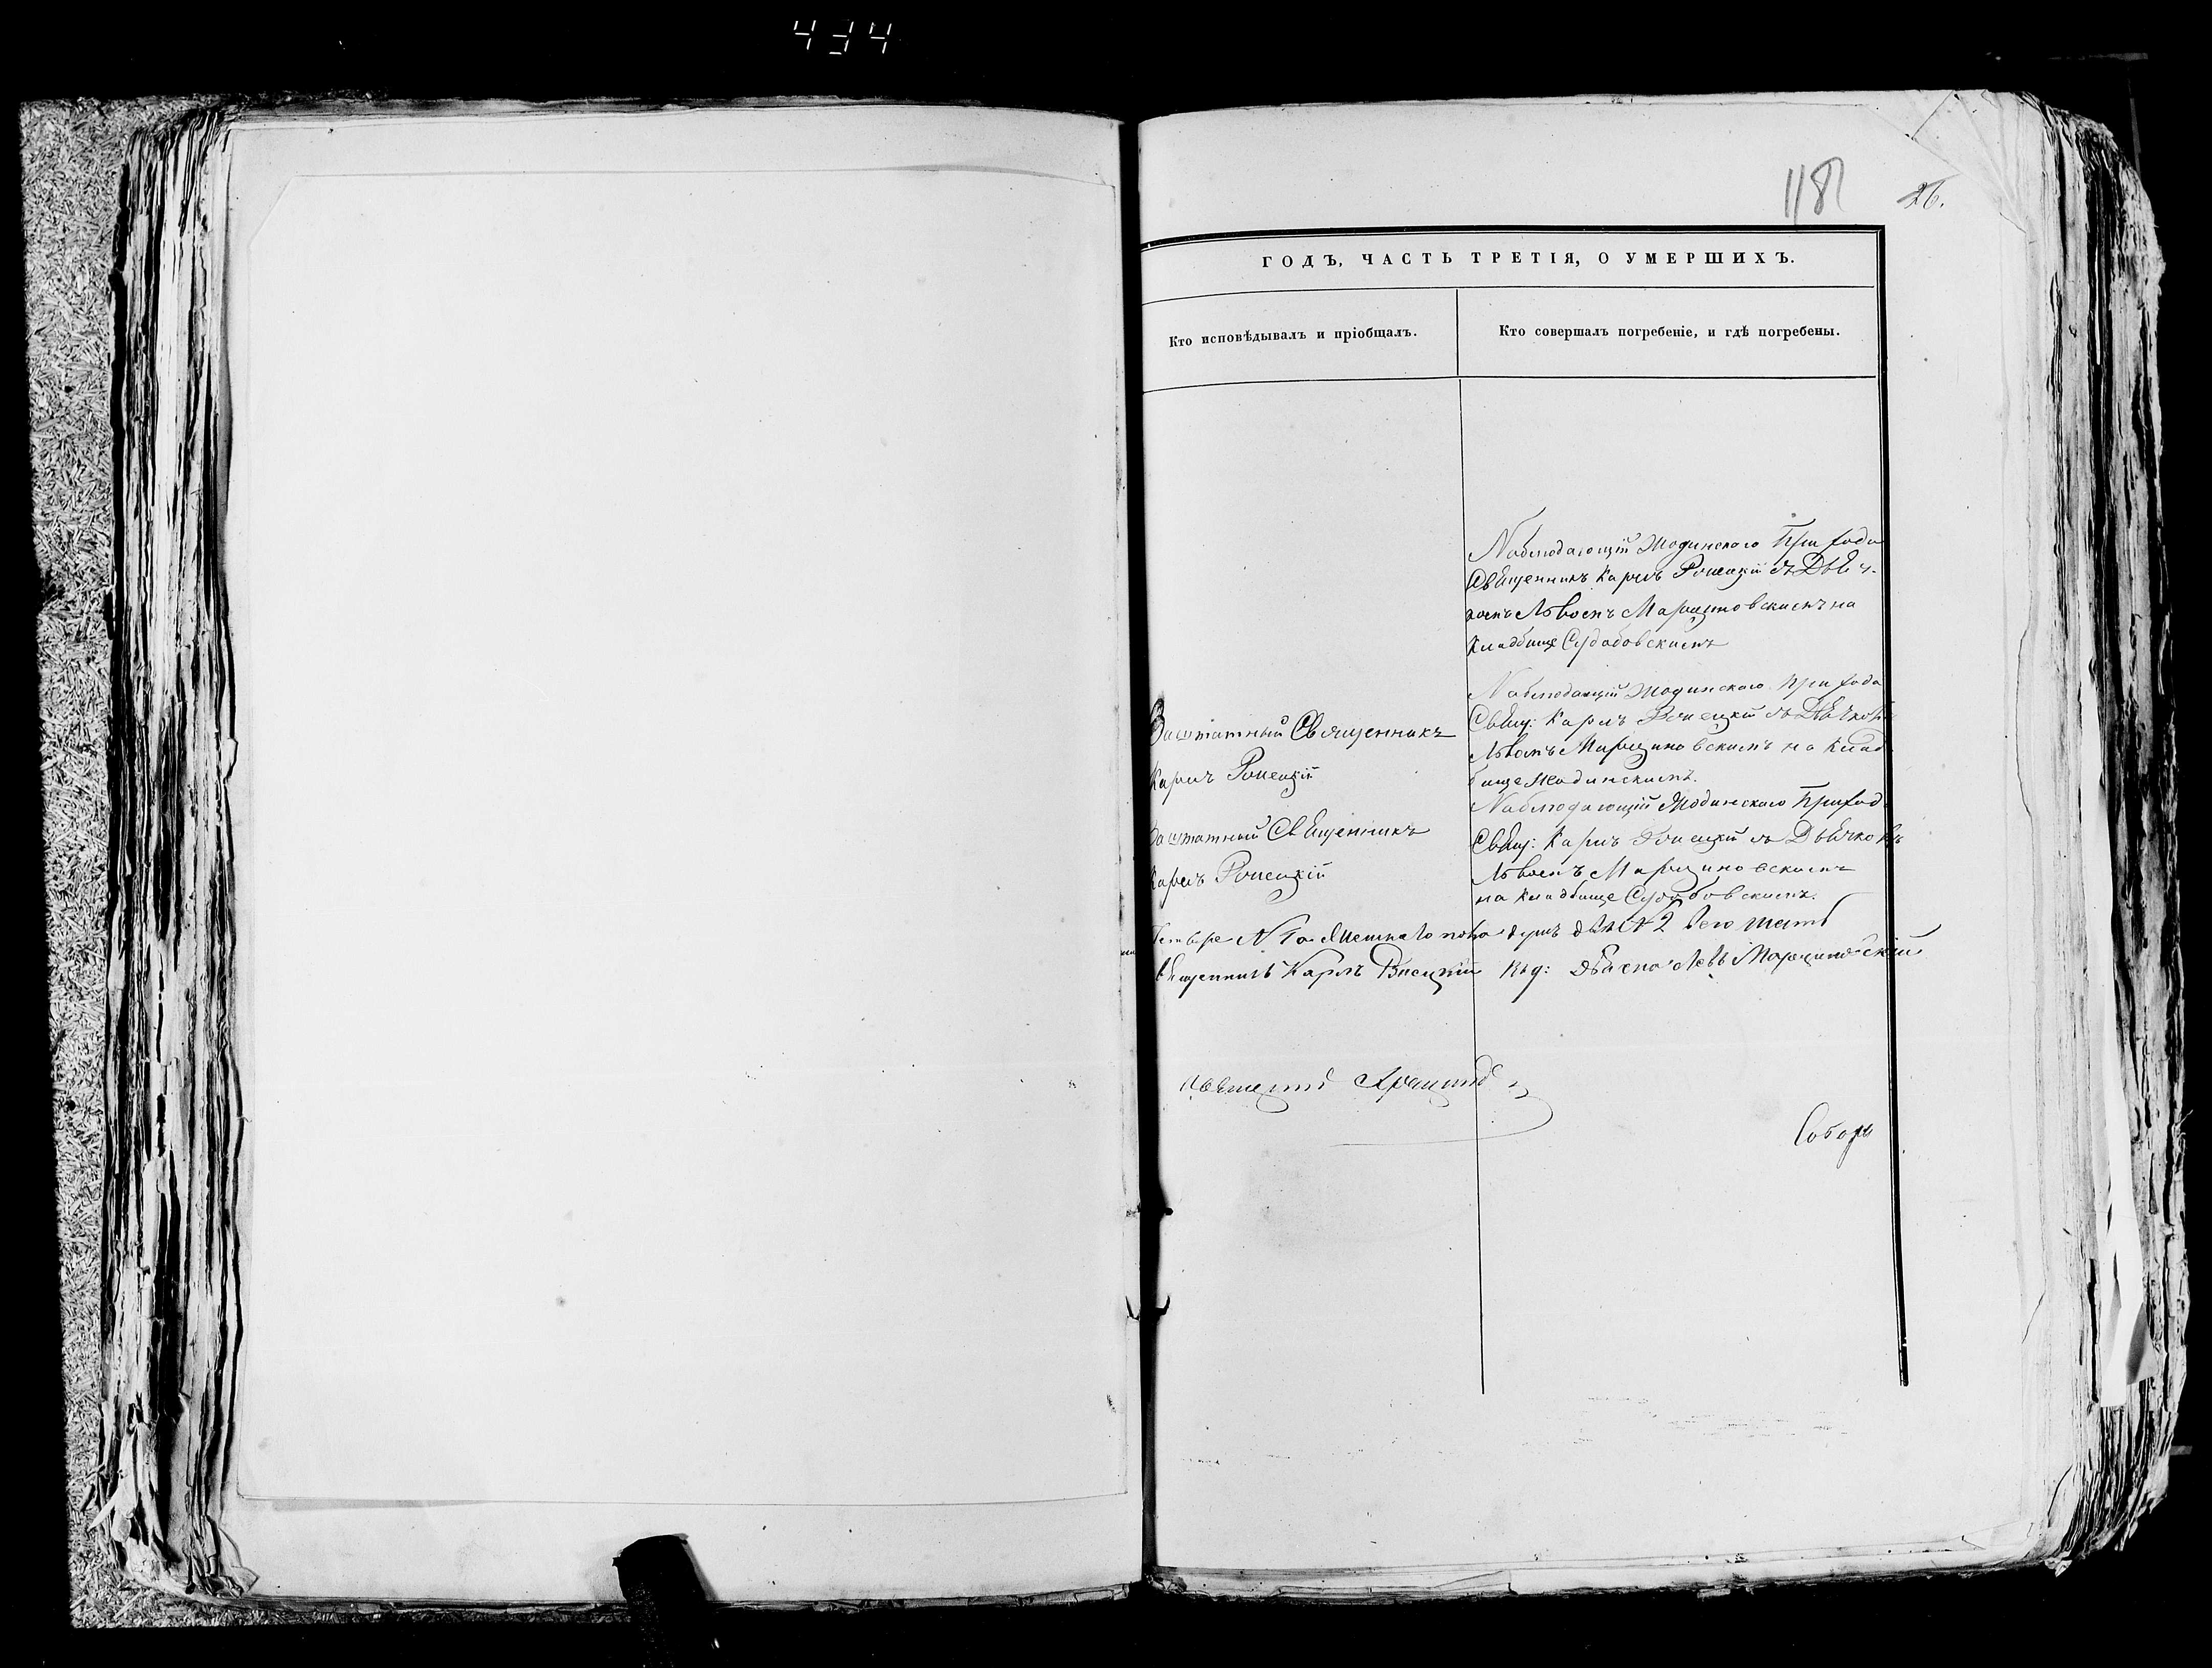 434
118
26.
ГОДЪ, ЧАСТЬ ТРЕТІЯ, О УМЕРШИХЪ.
Кто исповѣдывалъ и пріобщалъ.
Кто совершалъ погребеніе, и гдѣ погребены.
Наблюдающій Жодинскаго Прихода
Священникъ Карлъ Ропецкій съ Дьяч-
комъ Львомъ Марциновскимъ на
Кладбище Судобовскимъ
Заштатный Священникъ
Карлъ Ропецкій
Наблюдающій Жодинскаго Прихода
Свящ: Карлъ Ропецкій съ Дьячком
Львомъ Марциновскимъ на Клад
бище Жодинскимъ.
Заштатный Священникъ
Карлъ Ропецкій
Наблюдающій Жодинскаго Приход
Свящ: Карлъ Ропецкій съ Дьячкомъ
Львомъ Марциновскимъ
на Кладбище Судобовскимъ.
душъ 2 всего
Священникъ Карлъ Ропецкій Левъ Марциновскій